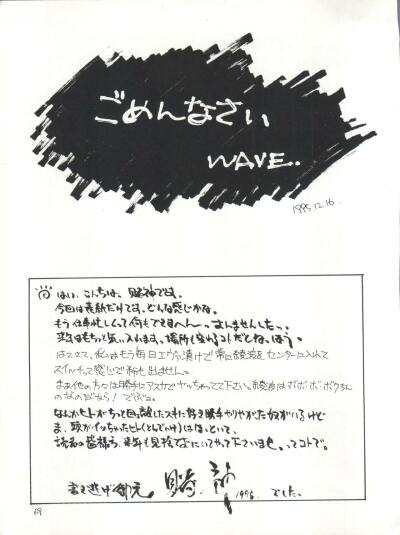 ごめんなさい
WAVE..
1995.12.16.
はい、こんちは、賭神です。
今回は表紙だけです。どんな感じかな。
もう仕事忙しくって何もできませーんっ すんませんしたっ。
はてさて、私はもう毎日エヴァ漬けで常に綾波をセンターに入れて
スイッチって感じで粉も出ません。
まぁ他の方々は勝手にアスカでヤっちゃってて下さい。綾波はボボボボクちん
のなのだから！でぶー。
なんかヒトがちっと目を離したスキに好き勝手やりやがった奴がいるけど
ま、頭がイッちゃったヒト(とんでハけ)はほっといて、
読者の皆様方、来年も見捨てないでいてやって下さいませ。ってコトで。
書き逃げ御免 賭神 1996 でした。
69